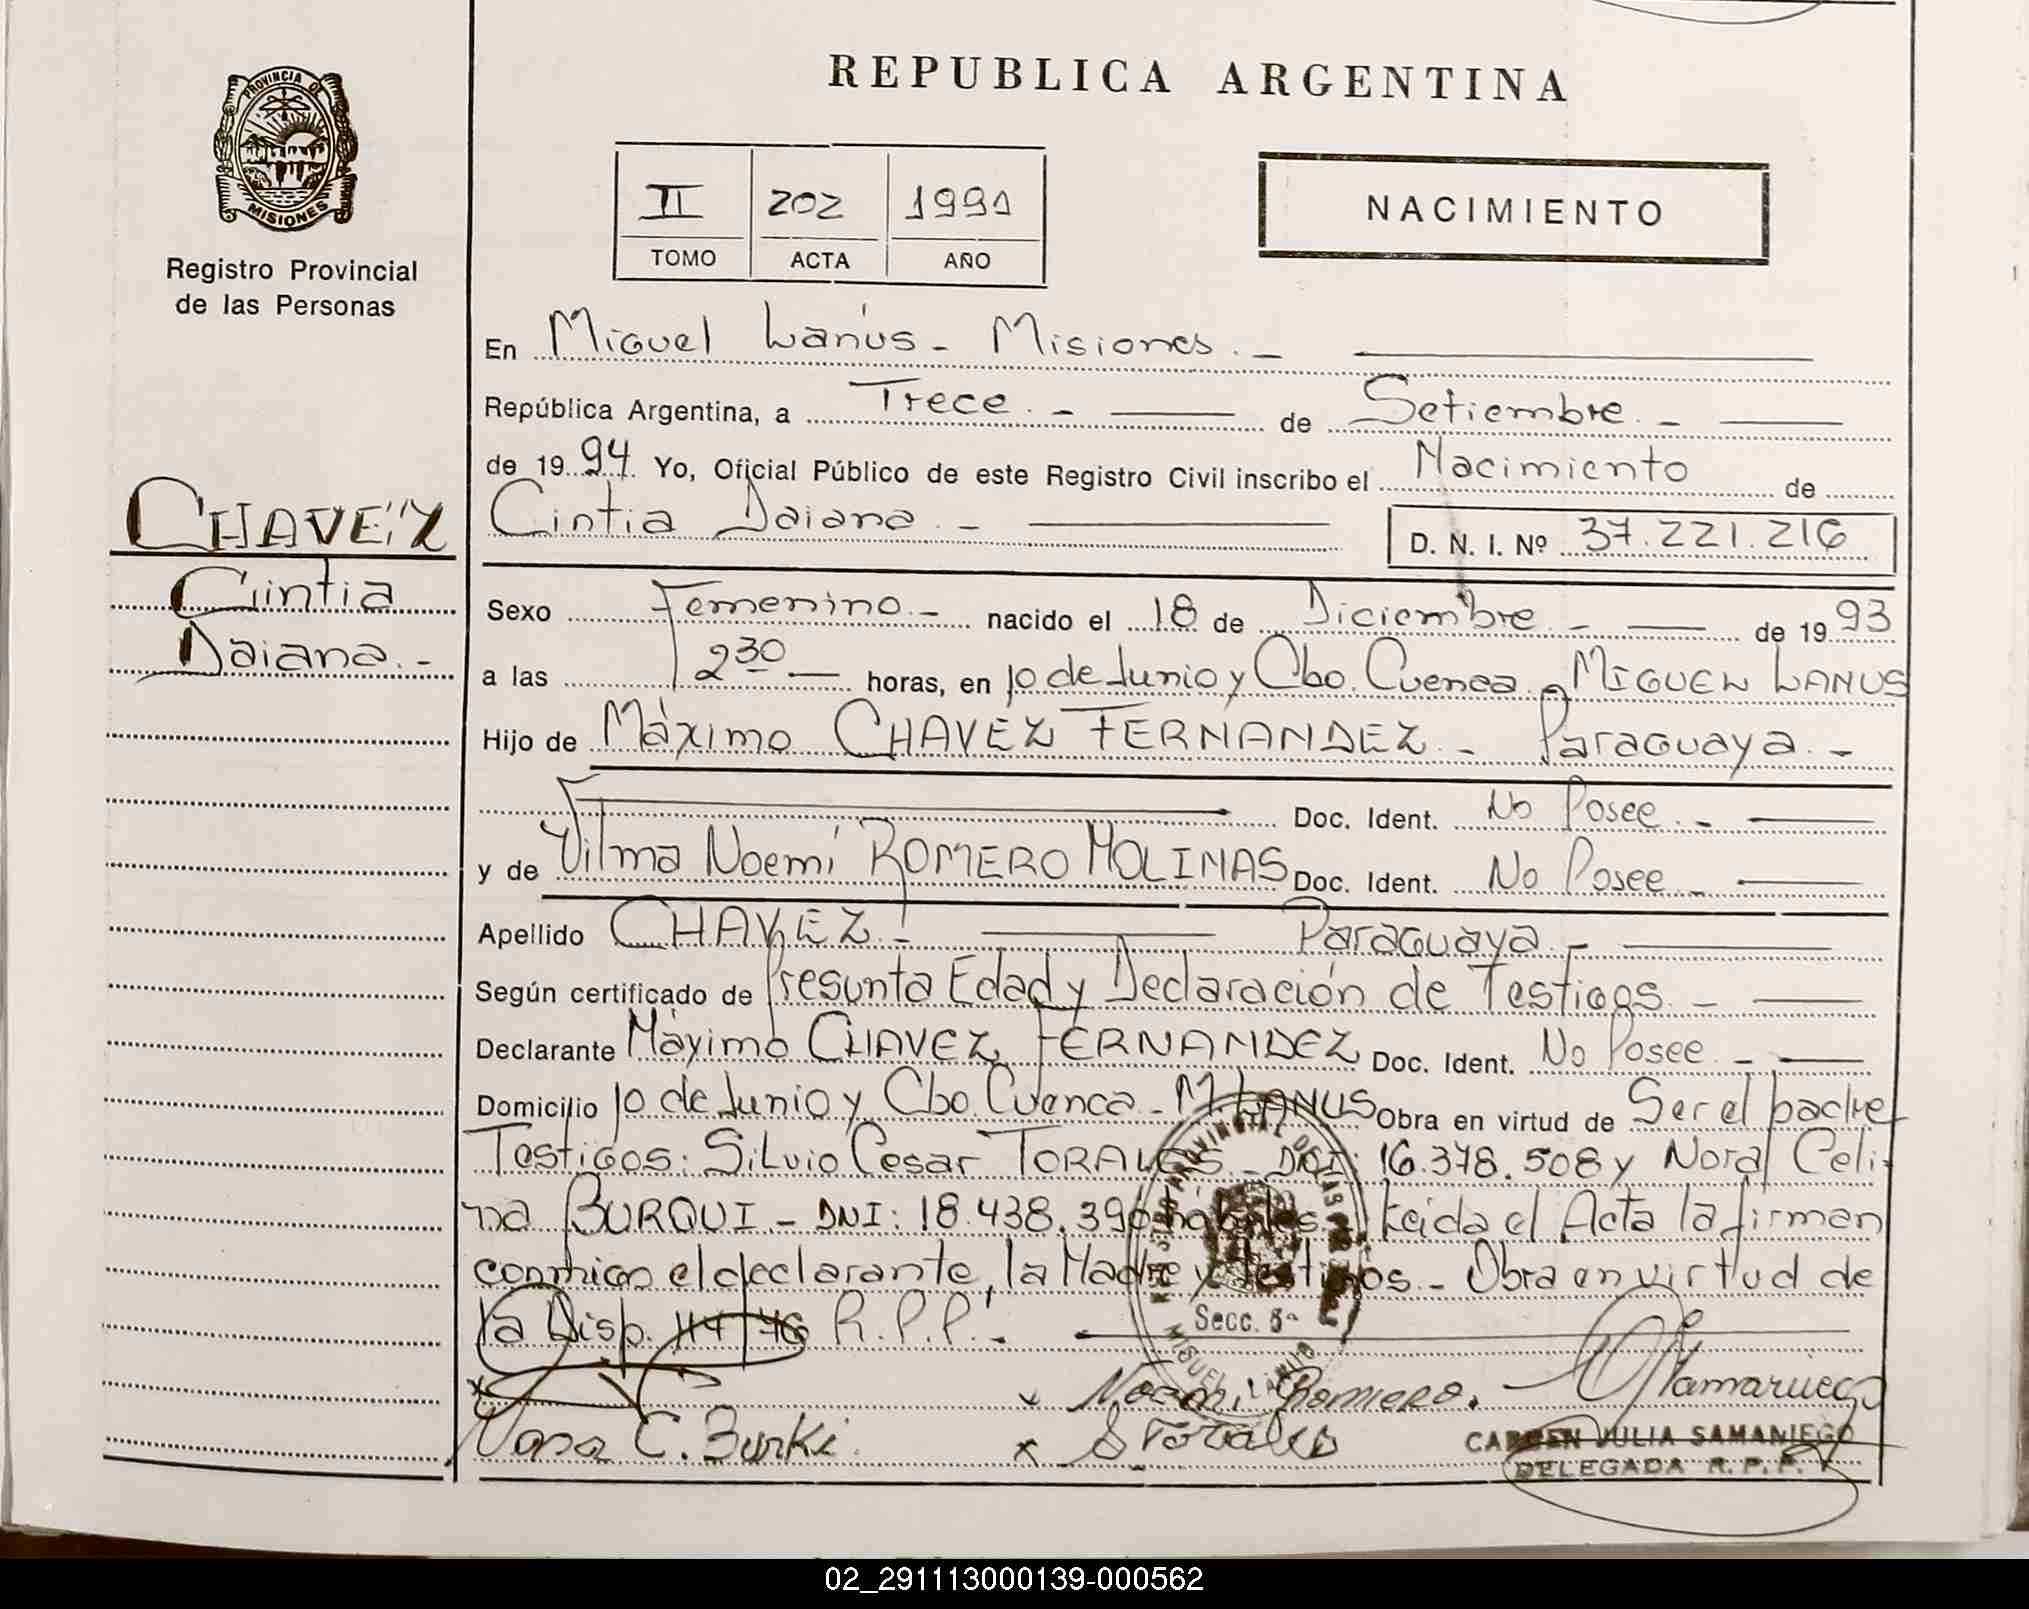 REPUBLICA ARGENTINA
PROVINCIA DE
MISIONES
Registro Provincial
de las Personas
II 202 1994
TOMO ACTA AÑO
NACIMIENTO
En Miguel Lanús - Misiones. -
República Argentina, a Trece. - de Setiembre. -
de 19 94 Yo, Oficial Público de este Registro Civil inscribo el Nacimiento de
Cintia Daiana. - D. N. I. Nº 37.221.216
CHAVEZ
Cintia
Daiana. -
Sexo Femenino. - nacido el 18 de Diciembre - de 19 93
a las 2 30 horas, en 10 de Junio y Cbo. Cuenca - MIGUEL LANUS
Hijo de Máximo CHAVEZ FERNANDEZ - Paraguaya. -
Doc. Ident. No Posee. -
y de Vilma Noemí ROMERO MOLINAS Doc. Ident. No Posee. -
Apellido CHAVEZ. - Paraguaya. -
Según certificado de Presunta Edad y Declaración de Testigos. -
Declarante Máximo CHAVEZ FERNANDEZ Doc. Ident. No Posee. -
Domicilio 10 de Junio y Cbo. Cuenca - M. LANUS Obra en virtud de Ser el padre
Testigos: Silvio Cesar TORALES - DNI: 16.378.508 y Nora Celi-
na BURQUI - DNI: 18.438.396 hábiles - Leida el Acta la firman
conmigo el declarante, la Madre y testigos. - Obra en virtud de
la Disp. 114/76 R.P.P. -
Secc. 5ª
MIGUEL LANUS
x Noemi Romero.
Nora C. Burki. x S Torales
CARMEN JULIA SAMANIEGO
DELEGADA R. P. P.
02_291113000139-000562